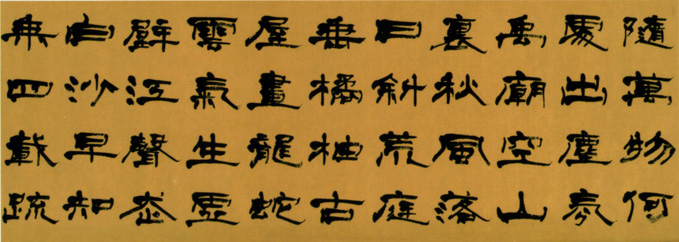 隨萬物何
處出塵氛
禹廟空山
裏秋風落
日斜荒庭
垂橘柚古
屋畫龍蛇
雲氣生虛
壁江聲走
白沙早知
乘四載疏